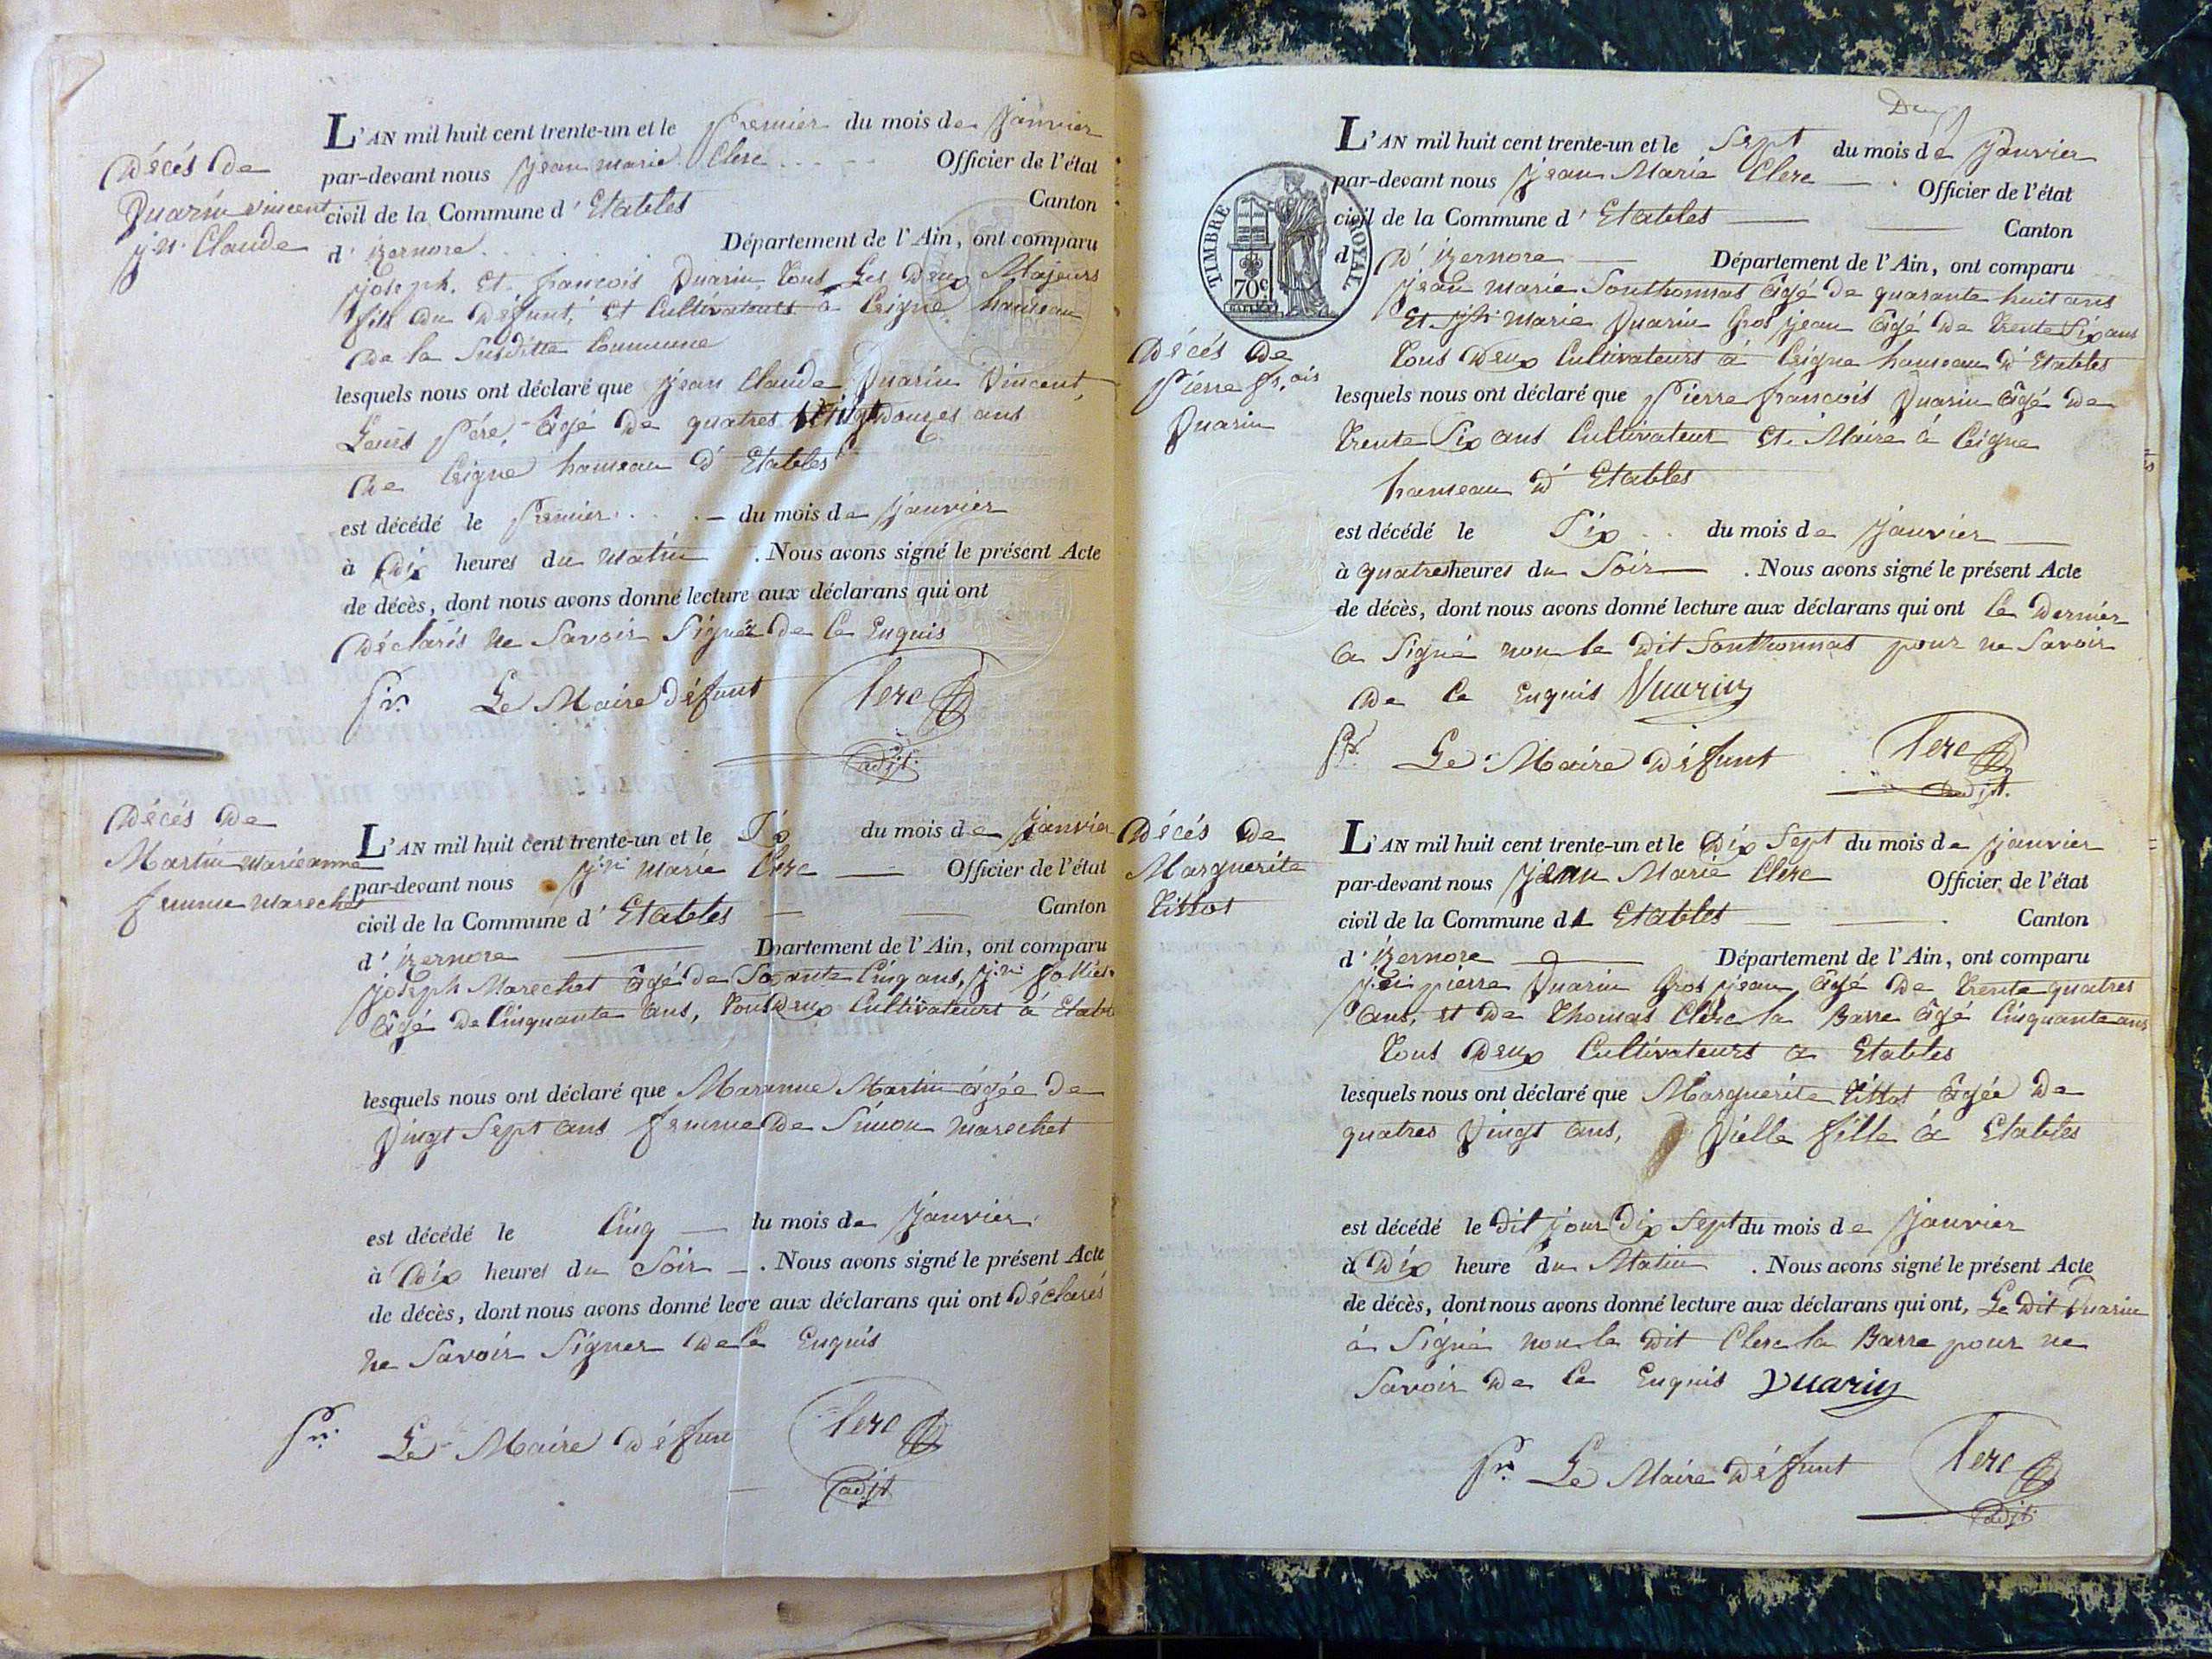 Décès de
Vuarin Vincent
jn. Claude
L'AN mil huit cent trente-un et le premier du mois de janvier
par-devant nous jean marie Clerc Officier de l'état
civil de la Commune d' Etables Canton
d' izernore Département de l'Ain, ont comparu
joseph. et francois Vuarin tous les deux Majeurs
fils du défunt, et Cultivateurs à Ceigne hameau
de la susditte Commune
lesquels nous ont déclaré que jean Claude Vuarin Vincent,
Leurs père, âgé de quatres vingt douzes ans
de Ceigne hameau d' Etables
est décédé le premier du mois de janvier
à Dix heures du matin . Nous avons signé le présent Acte
de décès, dont nous avons donné lecture aux déclarans qui ont
Déclarés ne savoir signer de ce Enquis
pr. Le Maire défunt Clerc
adjt.
Décès de
Martin marieanne
femme marechet
L'AN mil huit cent trente-un et le Six du mois de janvier
par-devant nous jn marie Clerc Officier de l'état
civil de la Commune d' Etables Canton
d' izernore Dpartement de l'Ain, ont comparu
joseph Marechet âgé de Soixante Cinq ans, jn
âgé de Cinquante ans, tous deux Cultivateurs à Etab
lesquels nous ont déclaré que Marianne Martin âgée de
Vingt Sept ans femme de Simon marechet
est décédé le Cinq du mois de janvier
à Dix heures du Soir . Nous avons signé le présent Acte
de décès, dont nous avons donné lecre aux déclarans qui ont Déclarés
ne Savoir Signer de ce Enquis
pr. Le Maire défun Clerc
adjt
Deux
TIMBRE ROYAL
70c
L'AN mil huit cent trente-un et le Sept du mois de janvier
par-devant nous jean Marie Clerc Officier de l'état
civil de la Commune d' Etables Canton
d D' izernore Département de l'Ain, ont comparu
jean marie Sonthonnas âgé de quarante huit ans
Et jph marie Vuarin Gros jean âgé de trente Six ans
tous Deux Cultivateurs à Ceigne hameau d' Etables
Décès de
Pierre fr.ois
Vuarin
lesquels nous ont déclaré que Pierre francois Vuarin âgé de
trente Six ans Cultivateur et Maire à Ceigne
hameau d' Etables
est décédé le Six du mois de janvier
à quatres heures du Soir . Nous avons signé le présent Acte
de décès, dont nous avons donné lecture aux déclarans qui ont le Dernier
a Signé non le dit Sonthonnas pour ne Savoir
de ce Enquis Vuarin
pr. Le Maire défunt Clerc
adjt.
Décès de
Marguerite
Tittot
L'AN mil huit cent trente-un et le Dix Sept du mois de janvier
par-devant nous jean Marie Clerc Officier de l'état
civil de la Commune d Etables Canton
d' izernore Département de l'Ain, ont comparu
pierre Vuarin Gros jean âgé de trente quatres
ans, et de Thomas Clerc la Barre âgé Cinquante ans
tous deux Cultivateurs à Etables
lesquels nous ont déclaré que Marguerite Tittot âgée de
quatres Vingt ans, Vielle fille à Etables
est décédé le dit jour Dix Sept du mois de janvier
à Dix heure du Matin . Nous avons signé le présent Acte
de décès, dont nous avons donné lecture aux déclarans qui ont, Le Dit Vuarin
à Signé non le dit Clerc la Barre pour ne
Savoir de ce Enquis Vuarin
pr. Le Maire défunt Clerc
adjt.